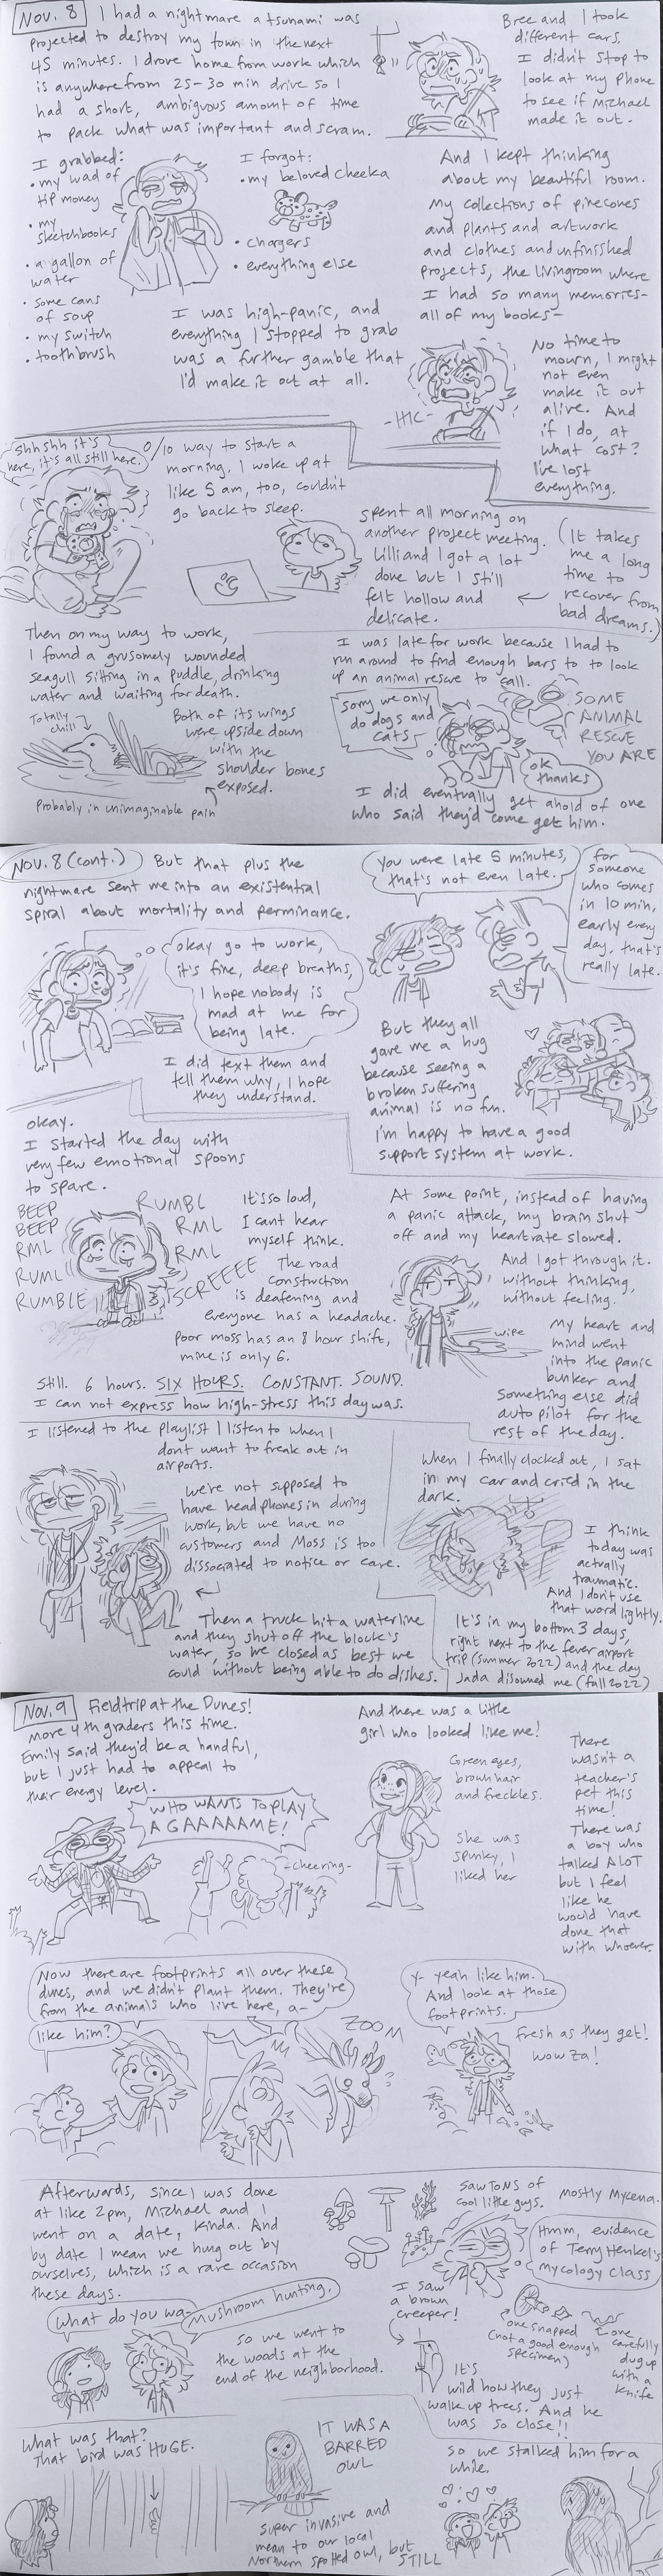 Nov. 8
I had a nightmare a tsunami was
projected to destroy my town in the next
45 minutes. I drove home from work which
is anywhere from 25-30 min drive so I
had a short, ambiguous amount of time
to pack what was important and scram.
I grabbed:
• my wad of
tip money
• my
sketchbooks
• a gallon of
water
• some cans
of soup
• my switch
• toothbrush
I forgot:
• my beloved cheeka
• chargers
• everything else
I was high-panic, and
everything I stopped to grab
was a further gamble that
I'd make it out at all.
Bree and I took
different cars.
I didn't stop to
look at my phone
to see if Michael
made it out.
And I kept thinking
about my beautiful room.
My collections of pinecones
and plants and artwork
and clothes and unfinished
projects, the livingroom where
I had so many memories-
all of my books-
-HIC-
No time to
mourn, I might
not even
make it out
alive. And
if I do, at
what cost?
I've lost
everything.
shh shh it's
here, it's all still here.
0/10 way to start a
morning. I woke up at
like 5 am, too, couldn't
go back to sleep.
spent all morning on
another project meeting.
Lilli and I got a lot
done but I still
felt hollow and
delicate.
(It takes
me a long
time to
recover from
bad dreams.)
Then on my way to work,
I found a grusomely wounded
seagull sitting in a puddle, drinking
water and waiting for death.
Totally
chill
Both of its wings
were upside down
with the
shoulder bones
exposed.
Probably in unimaginable pain
I was late for work because I had to
run around to find enough bars to to look
up an animal rescue to call.
Sorry we only
do dogs and
cats
SOME
ANIMAL
RESCUE
YOU ARE
ok
thanks
I did eventually get ahold of one
who said they'd come get him.
Nov. 8 (cont.)
But that plus the
nightmare sent me into an existential
spiral about mortality and perminance.
okay go to work,
it's fine, deep breaths,
I hope nobody is
mad at me for
being late.
I did text them and
tell them why, I hope
they understand.
You were late 5 minutes,
that's not even late.
for
someone
who comes
in 10 min.
early every
day, that's
really late.
But they all
gave me a hug
because seeing a
broken suffering
animal is no fun.
I'm happy to have a good
support system at work.
okay.
I started the day with
very few emotional spoons
to spare.
BEEP
BEEP
RML
RUML
RUMBLE
RUMBL
RML
RML
SCREEEE
It's so loud,
I cant hear
myself think.
The road
construction
is deafening and
everyone has a headache.
Poor moss has an 8 hour shift,
mine is only 6.
Still. 6 hours. SIX HOURS. CONSTANT. SOUND.
I can not express how high-stress this day was.
At some point, instead of having
a panic attack, my brain shut
off and my heartrate slowed.
And I got through it.
without thinking,
without feeling.
wipe
My heart and
mind went
into the panic
bunker and
something else did
auto pilot for the
rest of the day.
I listened to the playlist I listen to when I
dont want to freak out in
airports.
We're not supposed to
have headphones in during
work, but we have no
customers and Moss is too
dissociated to notice or care.
Then a truck hit a waterline
and they shut off the block's
water, so we closed as best we
could without being able to do dishes.
When I finally clocked out, I sat
in my car and cried in the
dark.
I think
today was
actually
traumatic.
And I don't use
that word lightly.
It's in my bottom 3 days,
right next to the fever airport
trip (summer 2022) and the day
Jada disowned me (fall 2022)
Nov. 9
Fieldtrip at the Dunes!
more 4th graders this time.
Emily said they'd be a handful,
but I just had to appeal to
their energy level.
WHO WANTS TO PLAY
A GAAAAAME!
-cheering-
And there was a little
girl who looked like me!
Green eyes,
brown hair
and freckles.
She was
spunky, I
liked her
There
wasn't a
teacher's
pet this
time!
There was
a boy who
talked A LOT
but I feel
like he
would have
done that
with whoever.
Now there are footprints all over these
dunes, and we didn't plant them. They're
from the animals who live here, a-
like him?
ZOOM
Y- yeah like him.
And look at those
footprints.
Fresh as they get!
wow za!
Afterwards, since I was done
at like 2pm, Michael and I
went on a date, kinda. And
by date I mean we hung out by
ourselves, which is a rare occasion
these days.
What do you wa-
Mushroom hunting.
So we went to
the woods at the
end of the neighborhood.
Saw TONS of
cool little guys.
mostly Mycena.
Hmm, evidence
of Terry Henkel's
mycology class
one snapped
(not a good enough
specimen)
one
carefully
dug up
with a
knife
I saw
a brown
creeper!
It's
wild how they just
walk up trees. And he
was so close!!
What was that?
That bird was HUGE.
IT WAS A
BARRED
OWL
super invasive and
mean to our local
Northern spotted owl, but
STILL
So we stalked him for a
while.